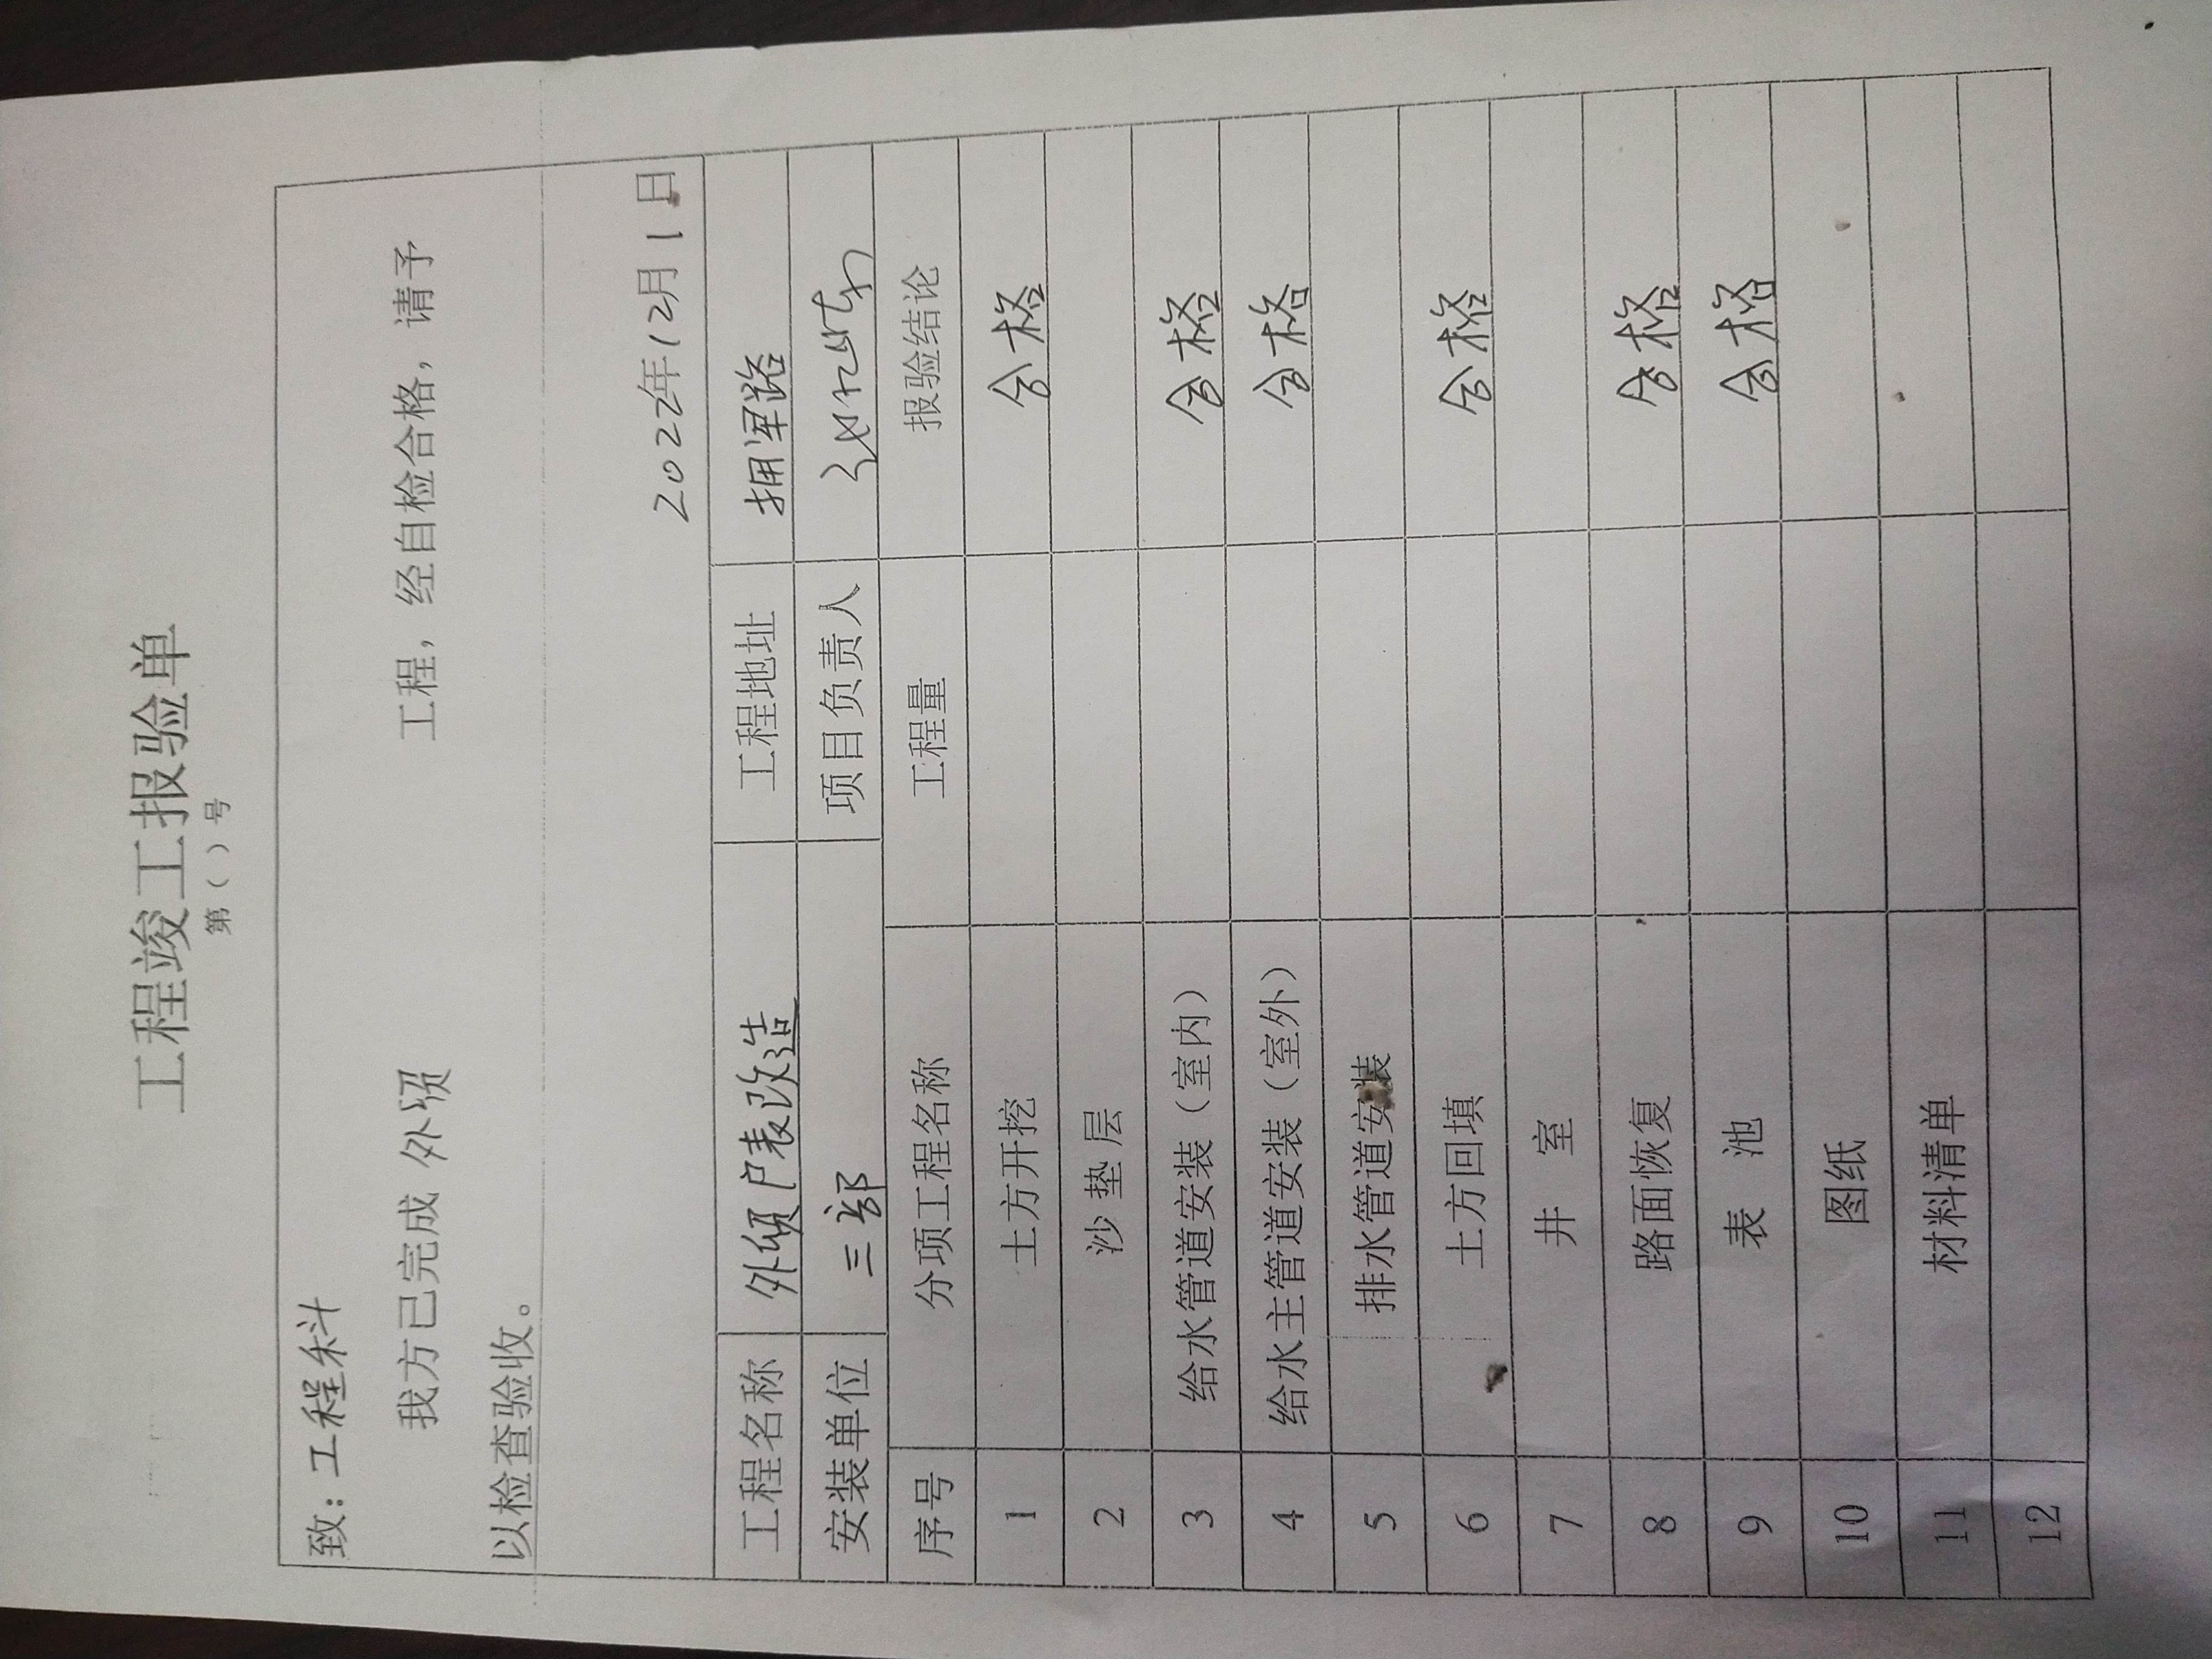 工程竣工报验单
第（ ）号
致：工程科
我方已完成 外贸 工程，经自检合格，请予
以检查验收。
2022年12月1日
工程名称 外贸户表改造 工程地址 拥军路
安装单位 三部 项目负责人
序号 分项工程名称 工程量 报验结论
1 土方开挖 合格
2 沙垫层
3 给水管道安装（室内） 合格
4 给水主管道安装（室外） 合格
5 排水管道安装
6 土方回填 合格
7 井 室
8 路面恢复 合格
9 表 池 合格
10 图纸
11 材料清单
12